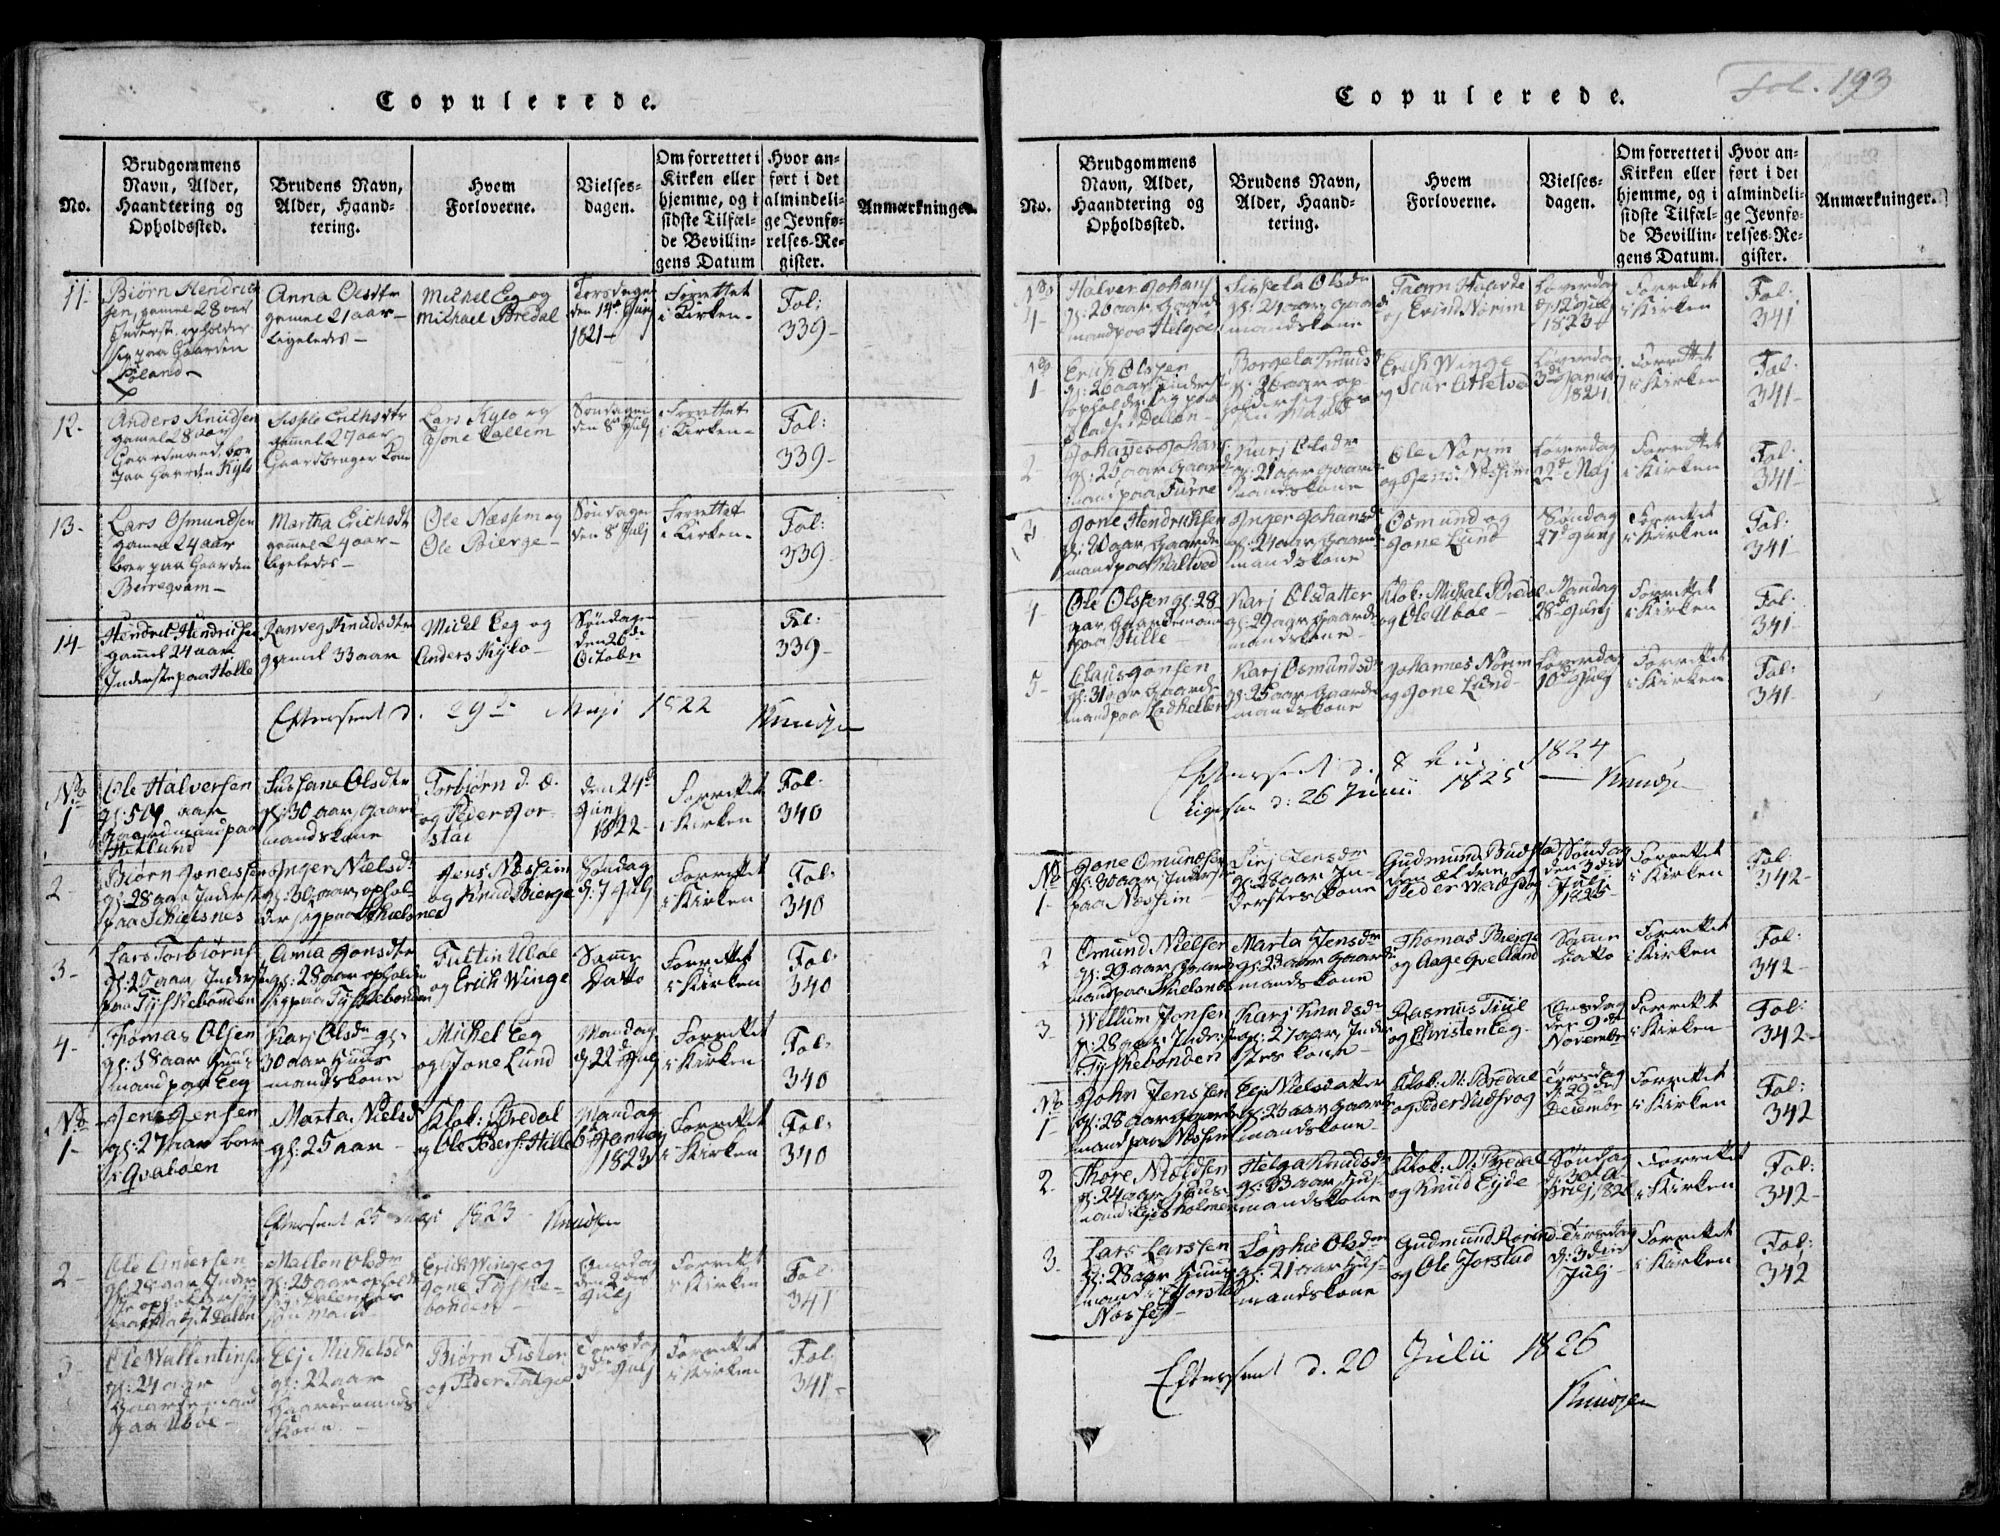 Copulerede.
No.
Brudgommens
Navn, Alder,
Haandtering og
Opholdssted.
Brudens Navn,
Alder, Haand-
tering.
Hvem
Forloverne.
Vielses-
dagen.
Om forrettet i
Kirken eller
hjemme, og i
sidste Tilfæl-
de Bevillin-
gens Datum
Hvor an-
ført i det
almindeli-
ge Jevnfø-
relses-Re-
gister.
Anmærkninger.
11-
Biørn Hendrich
sen, gamel 28 aar
Inderste opholder
sig paa Gaarden
Anna Olsdtr
gamel 21 aar-
ligeledes-
Michel Eg og
Michael Bredal
Torsdagen
den 14de Junj
1821-
Forrettet
i Kirken-
Fol:
339-
12-
Anders Knudsen
gamel 28 aar
Gaardmand, boer
paa Gaarden Kylo
Erichsdtr
gamel 27 aar-
Gaardbruger Kone
Lars Kylo og
Søndagen
den 8de Julj
Forrettet
i Kirken-
Fol:
339-
13-
Lars Osmundsen
gamel 24 aar
boer paa Gaarden
Martha Erichsdt
gamel 24 aar-
ligeledes-
Ole Næssem og
Ole Bierge-
Søndagen
den 8de Julj
Forrettet
i Kirken-
Fol:
339-
14-
Hendrik Hendrichsen
gamel 24 aar
Inderste paa Helle
Ranveg Knudsdtr
gamel 33 aar
Michel Eeg og
Anders Kylo-
Søndagen
den
Octobr
Fol:
339-
Efterseet d. 29de Maji 1822 Knudsen
No
1
Ole Halversen
aar
gaardmand paa
Susane Olsdtr
gl: 30 aar, gaard
mandskone
Torbiørn d. æ.
og Peder Jor-
stad
den 24de
Junj
1822-
Forrettet
i Kirken
Fol:
340
2-
Biørn Jonassen
gl: 28 aar Inderste
paa Schielsnes
Inger Nielsdr
gl: 30 aar, ophol-
der sig paa Schielsnes
Jens Næsheim
og Knud Bierge
Søndag
d: 7 Julj
Forrettet
i Kirken
Fol:
340
3-
Lars Torbiørns
gl: 25 aar Inderste
paa Tyskebonden
Anna Jonsdtr
gl: 28 aar opholder
sig paa Tyskebonden
Tuttin Uboe
og Erich Winge
Samme
Dato
Forrettet
i Kirken
Fol:
340
4-
Tomas Olsen
gl: 38 aar Huus-
mand paa Eeg
Karj Olsdr gl:
30 aar Huus
mandskone
Michel Eeg
og Jone Lund
Mandag
d: 22de Julj
Forrettet
i Kirken
Fol:
340
No
1-
Jens Jensen
gl: 27 aar boer
i Qvaloen
Marta Nielsd
gl: 25 aar-
Klok: Bredal
og Ole Peders: Hille
Mandag
6te Januarj
1823
Forrettet
i Kirken
Fol:
340
Efterseet 25 Maji 1823 Knudsen
2-
Ole
gl: 28 aar Inder-
Mallen Olsdr
gl: 25 aar
Erich Winge og
Jone Tyske-
bonden-
Onsdag
den 2den
Julj
Forrettet
i Kirken
Fol:
341
3-
Ole Wallentins
gl: 24 aar
Gaardemand
paa Uboe-
Elj Michelsdr
gl: 22 aar
Gaardemands
Kone-
Biørn Fister
og Peder
Torsdag
3de Julj
Forrettet
i Kirken
Fol:
341-
Copulerede.
Fol. 193
No.
Brudgommens
Navn, Alder,
Haandtering og
Opholdssted.
Brudens Navn,
Alder, Haand-
tering.
Hvem
Forloverne.
Vielses-
dagen.
Om forrettet i
Kirken eller
hjemme, og i
sidste Tilfæl-
de Bevillin-
gens Datum.
Hvor an-
ført i det
almindeli-
ge Jevnfø-
relses-Re-
gister.
Anmærkninger.
No
4-
Halver Johans
gl: 26 aar, gaard
mand paa Helgøe
Siskela Olsdr
gl: 21 aar, gaard
mandskone
og Erind Norim
Løverdag
d: 12 Julj
1823
Forrettet
i Kirken
Fol:
341
No
1-
Erich Olsen
gl: 26 aar Inderste
opholder sig paa
Pladset Dalen-
Borgela Knuds
gl: 26 aar op-
holder sig hos
sin Mand
Erich Winge
og
Løverdag
3die Januarj
1824
Forrettet
i Kirken
Fol:
341-
2-
Johannes Johans
gl: 25 aar Gaard
mand paa Furne
Karj Olsdr
gl: 21 aar gaard
mandskone
Ole Norim
og Jens Nesheim
Løverdag
22de Maj
Forrettet
i Kirken
Fol:
341-
3
Jone Hendrichsen
gl: 20 aar, Gaarde
mand paa
Inger Johansd
gl: 24 aar Gaard
mandskone
Osmund og
Jone Lund
Søndag
27de Junj
Forrettet
i Kirken
Fol:
341-
4
Ole Olsen gl: 28
aar Gaardemand
paa Hille-
Karj Olsdatter
gl: 29 aar Gaarde
mandskone-
Klok: Michal Bredal
og Ole Uboe-
Mandag
28de Junj
Forrettet
i Kirken
Fol:
341-
5-
Claus Jonsen
gl: 31 aar Gaard
mand paa
Karj Osmundsd
gl: 25 aar Gaarde
mandskone
Johannes Norim
og Jone Lund-
Løverdag
10de Julj
Forrettet
i Kirken
Fol:
341-
Efterseet d. 8 Aug. 1824
ligesaa d: 26 Junii 1825 — Knudsen
No
1-
Jone Omundsen
gl: 30 aar, Inderste
paa Nesheim-
Sirj Jensdr
gl: 28 aar In-
derstes kone
Gudmund
den ældre, og
Peder Wadsvog
Søndag
den 3die
Julj
1825-
Forrettet
i Kirken
Fol:
342-
2
Omund Nielsen
gl: 29 aar, Gaard
mand paa Skielsnes
Marta Jensdr
gl: 23 aar Gaard
mandskone
Thomas Bierge
og Aage Qvelland
Samme
Dato
Forrettet
i Kirken
Fol:
342-
3-
Willum Jonsen
gl: 28 aar. Inderste
Tyskebonden
Karj Knudsdr
gl: 27 aar, Inder
stes kone-
Rasmus Tiul
og Christen Eeg-
Onsdag
den 9de
Novembr
Forrettet
i Kirken
Fol:
342-
No
1-
John Jenssen
gl: 28 aar Gaard
mand paa Nessem
Elj Nielsdatter
gl: 23 aar Gaard
mandskone-
Klok: M: Bredal
og Peder Vadsvog
Torsdag
d: 29de
Decembr
Forrettet
i Kirken
Fol:
342
2-
Thore
gl: 24 aar, Huus-
mand
Helga Knudsdr
gl: 33 aar Huus
mandskone
Klok: M: Bredal
og Knud Eyde
Søndag
d: 30te A-
prilj 1826
Forrettet
i Kirken
Fol:
342-
3-
Lars Larssen
gl: 23 aar Huus
mand i Jorstad
Sophie Olsdr
gl: 21 aar Huus-
mandskone
Gudmund
og Ole Jorstad
Tirsdag
d: 3die
Julj
Forrettet
i Kirken
Fol:
342
Efterseet d. 20 Julii 1826
Knudsen